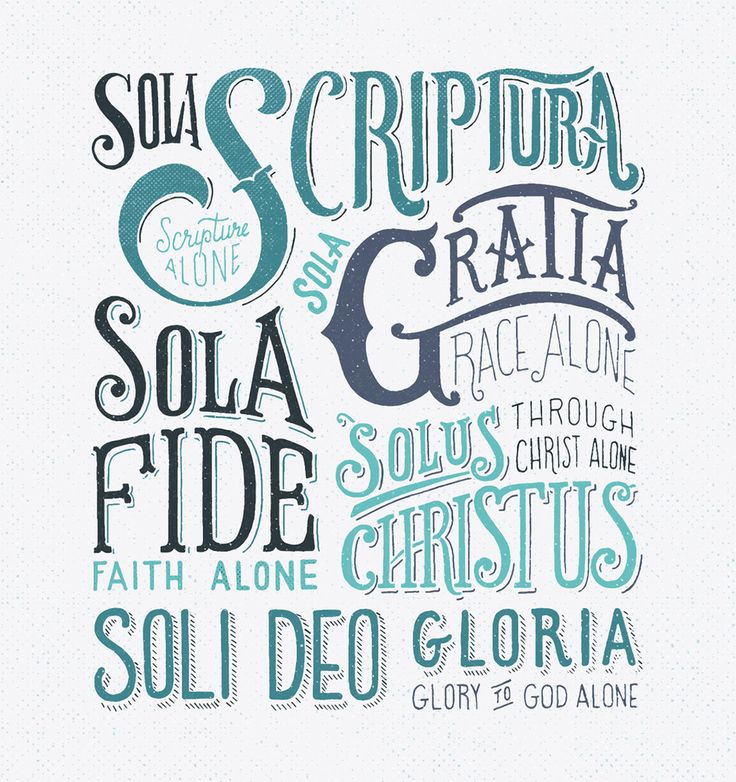 SOLA SCRIPTURA
Scripture
ALONE
SOLA GRATIA
GRACE ALONE
SOLA
FIDE
FAITH ALONE
SOLUS
THROUGH
CHRIST ALONE
CHRISTUS
SOLI DEO GLORIA
GLORY TO GOD ALONE